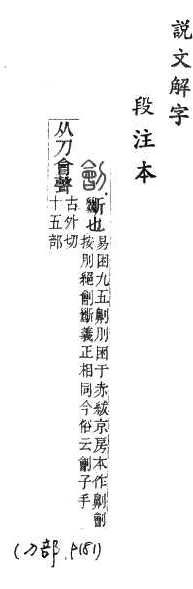 説文解字
段注本
劊 斷也
易困九五劓刖困于赤紱京房本作劓劊
按刖絕劊斷義正相同今俗云劊子手
从刀會聲
古外切
十五部
(刀部,P181)